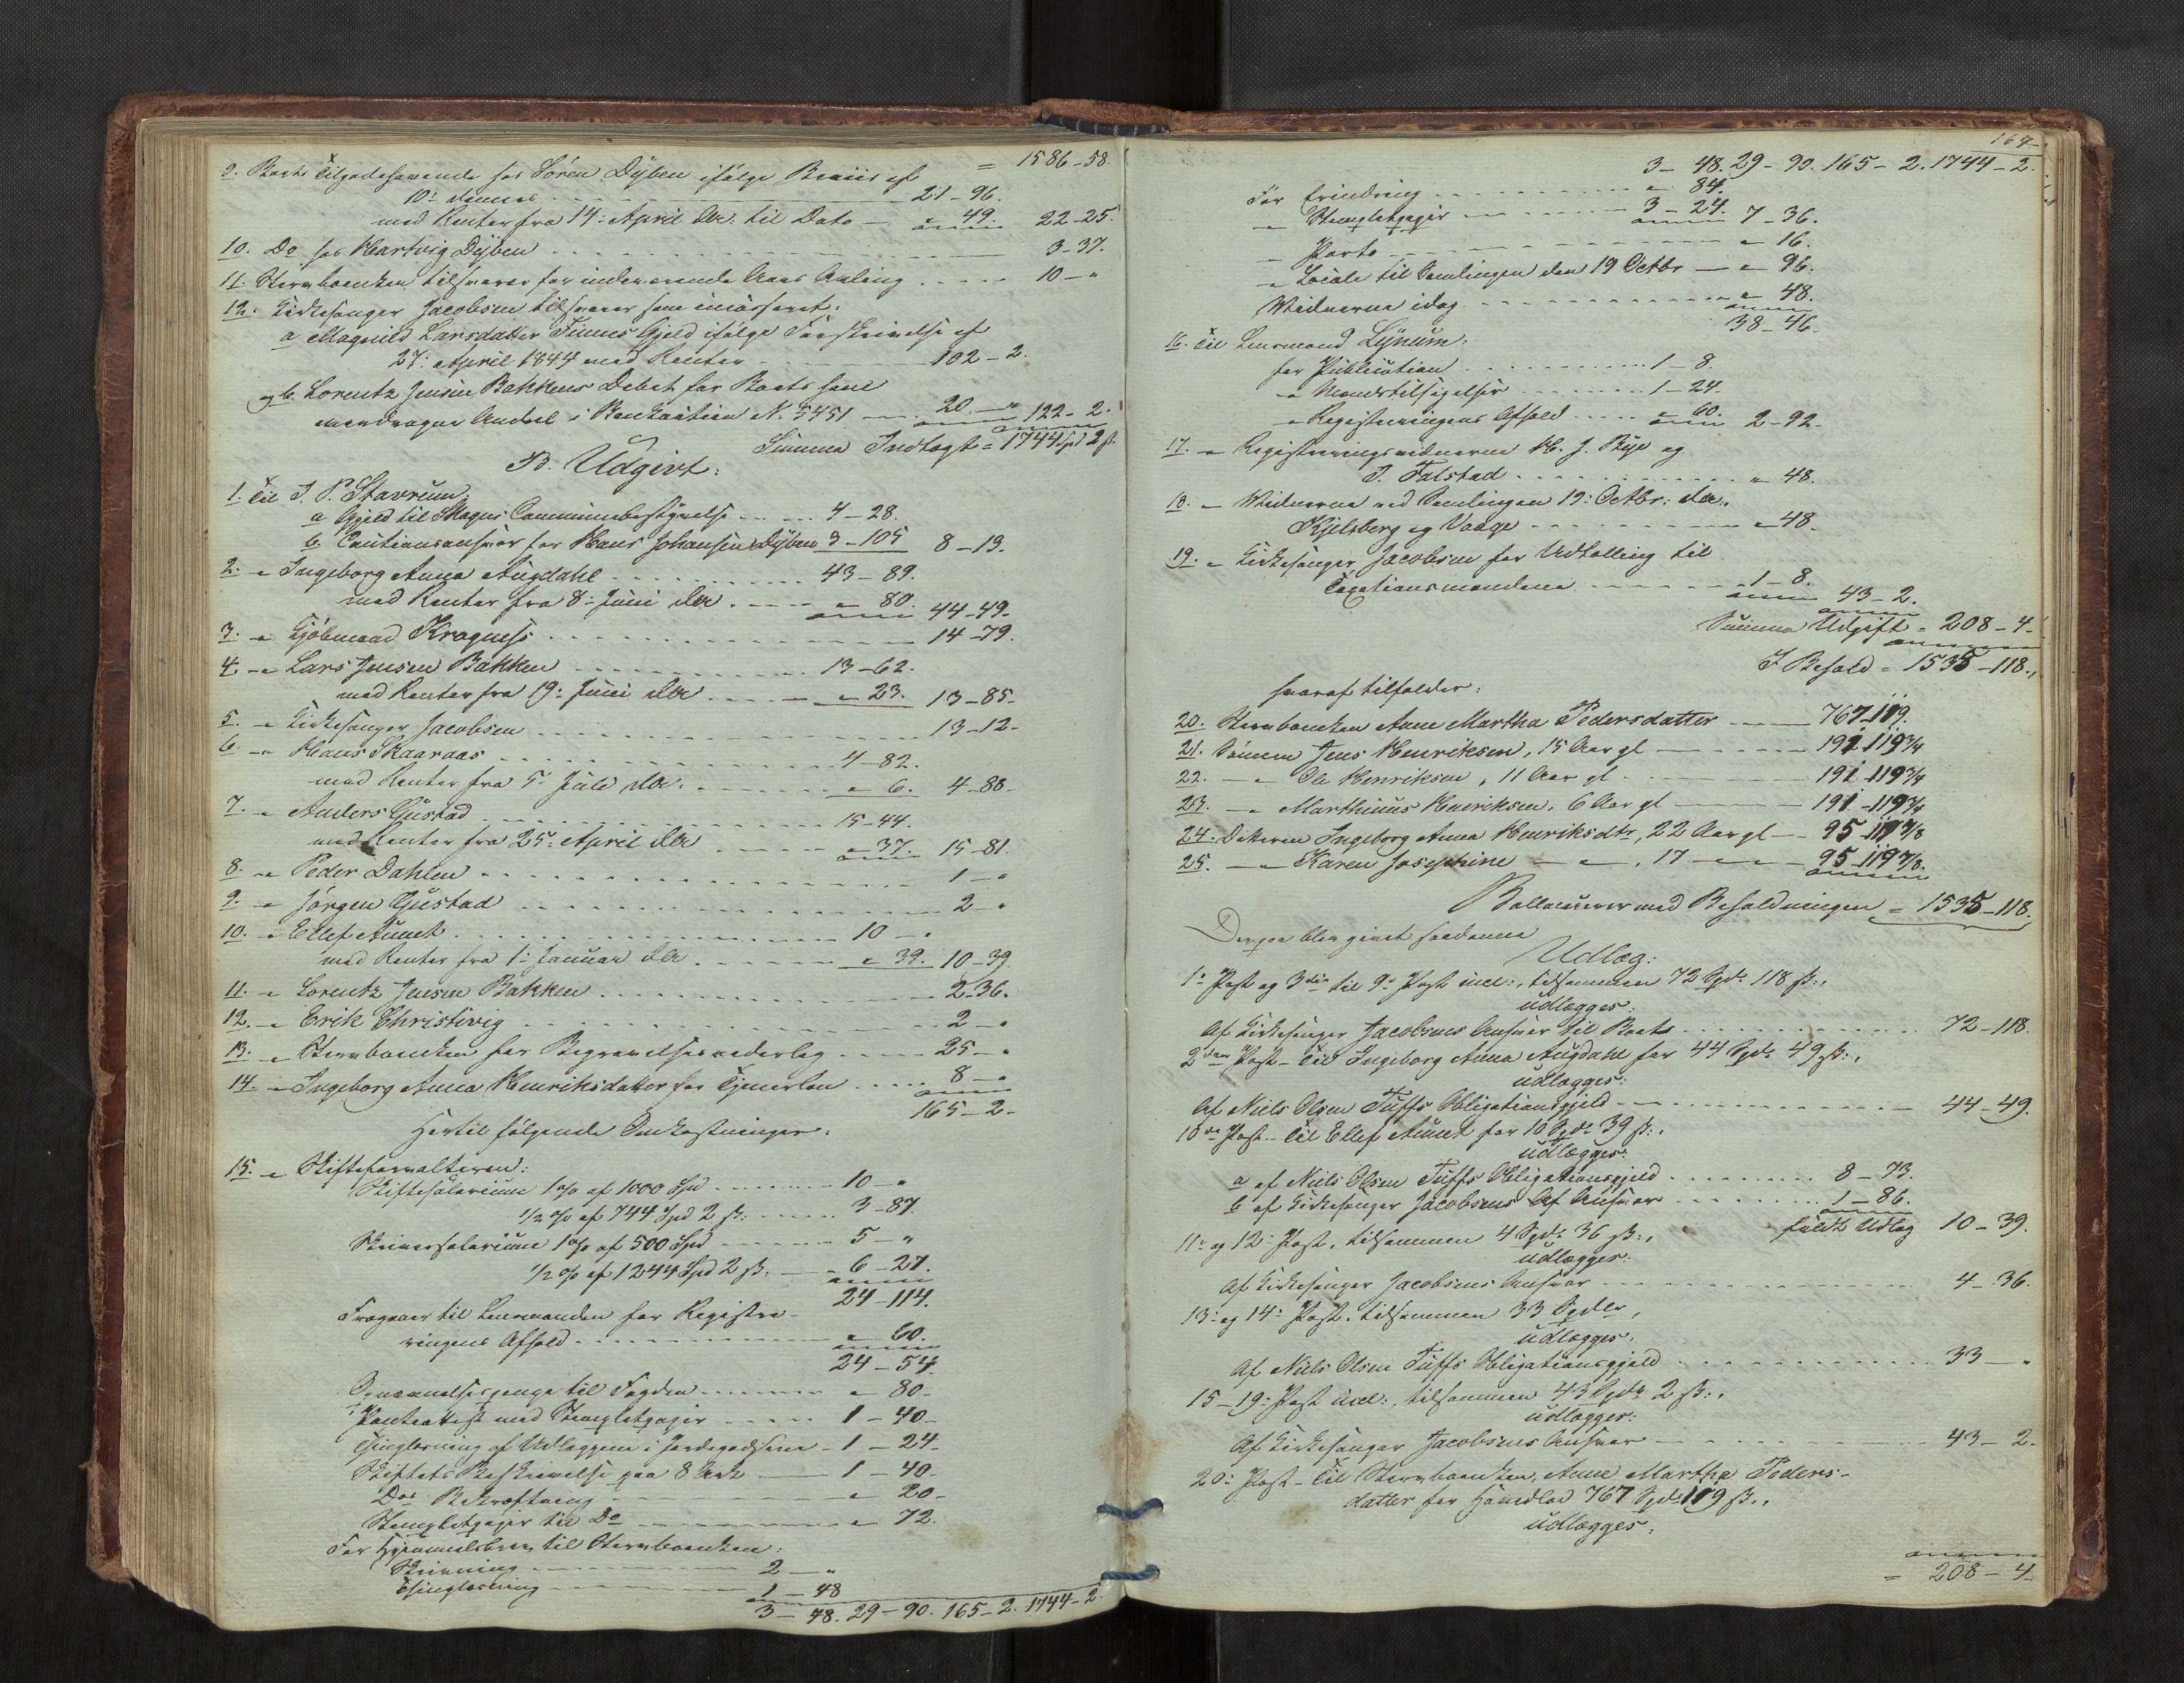 = 1586-58.
9. Boets Tilgodehavende hos Sören Dÿben ifölge Beviis af
10de dennes 21-96.
med Renter fra 14de April d.A. til Dato " 49. 22-25.
10. Do hos Hartvig Dÿben 3-37.
11. Stervboenken tilsvarer for indeværende Aars Avling 10-"
12. Kirkesanger Jacobsen tilsvarer som incasseret:
a Magnild Larsdatter Finnes Gjeld ifölge Forskrivelse af
27de April 1844 med Renter 102-2.
og b. Lorentz Jensen Bakkens Debet for Boets ham
overdragne Andeel i Bankactien N. 5451 20-" 122-2.
Summa Indtægt = 1744 Spd 2 ß.
B. Udgivt:
1. Til J. P. Stavrum:
a Gjeld til Skogns Communebestyrelse 4-28.
b Cautionsansvar for Hans Johansen Dÿben 3-105 8-13.
2. " Ingeborg Anna Augdahl 43-89.
med Renter fra 8de Juni d.A. " 80. 44-49.
3. " Kjöbmand Kragness 14-79.
4. " Lars Jensen Bakken 13-62.
med Renter fra 19de Juni d.A. " 23. 13-85.
5. " Kirkesanger Jacobsen 13-12.
6. " Hans Skaaraas 4-82.
med Renter fra 5te Juli d.A. " 6. 4-88.
7. " Anders Gustad 15-44.
med Renter fra 25de April d.A. " 37. 15-81.
8. " Peder Dahlen 1-"
9. " Jörgen Gustad 2-"
10. " Ellef Aunet 10-"
med Renter fra 1de Januar d.A. " 39. 10-39.
11. " Lorentz Jensen Bakken 2-36.
12. " Erik Christivig 2-"
13. " Stervboenken for Begravelsesvederlag 25-"
14. " Ingeborg Anna Henriksdatter for Tjenerlön 8-"
165-2.
Hertil fölgende Omkostninger:
15. " Skifteforvalteren:
Skiftesalarium 1 o/o af 1000 Spd 10-"
1/2 o/o af 744 Spd 2 ß. 3-87.
Skriversalarium 1 o/o af 500 Spd 5-"
1/2 o/o af 1244 Spd 2 ß. 6-27.
24-114.
Fragaaer til Lensmanden for Registre-
ringens Afhold " 60.
24-54.
Opnævnelsespenge til Fogden " 80.
Panteattest med Stempletpapir 1-40.
Thinglæsning af Udlæggene i Jordegodsene 1-24.
Skiftets Beskrivelse paa 8 Ark 1-40.
Dos Bekræftning " 20.
Stempletpapir til Do " 72.
For Hjemmelsbrev til Stervboenken:
Skrivning 2-"
Thinglæsning 1-48
3-48. 29-90. 165-2. 1744-2.
167.
3-48. 29-90. 165-2. 1744-2.
For Erindring " 84.
" Stempletpapir 3-24. 7-36.
" Porto " 16.
" Locale til Samlingen den 19 Octbr " 96.
Vidnerne idag " 48.
38-46.
16. Til Lensmand Lÿnum:
for Publication 1-8.
" Mandstilsigelser 1-24.
" Registreringens Afhold " 60. 2-92.
17. " Registreringsvidnerne H. J. Bye og
J. Falstad " 48.
18. " Vidnerne ved Samlingen 19de Octbr: d.A.,
Kjelsberg og Vaage " 48.
19. " Kirkesanger Jacobsen for Udtælling til
Taxationsmændene 1-8. 43-2.
Summa Udgift = 208-4.
I Behold = 1535-118.,
hvoraf tilfalder:
20. Stervboenken Anne Martha Pedersdatter 767-119.
21. Sönnen Jens Henriksen, 15 Aar gl 191-119 3/4
22. " Ole Henriksen, 11 Aar gl 191-119 3/4
23. " Marthinus Henriksen, 6 Aar gl 191-119 3/4
24. Datteren Ingeborg Anna Henriksdtr, 22 Aar gl 95-119 7/8
25. " Karen Josephine " , 17 " " 95-119 7/8.
Ballancerer med Beholdningen = 1535-118.
Derpaa blev givet saadanne
Udlæg:
1de Post og 3die til 9de Post incl:, tilsammen 72 Spdr 118 ß.,
udlægges:
Af Kirkesanger Jacobsens Ansvar til Boets 72-118.
2den Post - Til Ingeborg Anna Augdahl for 44 Spdr 49 ß.,
udlægges:
Af Niels Olsen Tuffs Obligationsgjeld 44-49.
10de Post - Til Ellef Aunet for 10 Spdr 39 ß.,
udlægges:
a af Niels Olsen Tuffs Obligationsgjeld 8-73.
b af Kirkesanger Jacobsens Af Ansvar 1-86.
fuldt Udlæg 10-39.
11de og 12de Post, tilsammen 4 Spdr 36 ß.,
udlægges:
Af Kirkesanger Jacobsens Ansvar 4-36.
13de og 14de Post, tilsammen 33 Spdlr,
udlægges:
Af Niels Olsen Tuffs Obligationsgjeld 33-"
15-19de Post incl:, tilsammen 43 Spdr 2 ß.,
udlægges:
Af Kirkesanger Jacobsens Ansvar 43-2.
20de Post - Til Stervboenken, Anne Martha Peders-
datter for Hovedlod 767 Spdr 119 ß.,
udlægges:
= 208-4